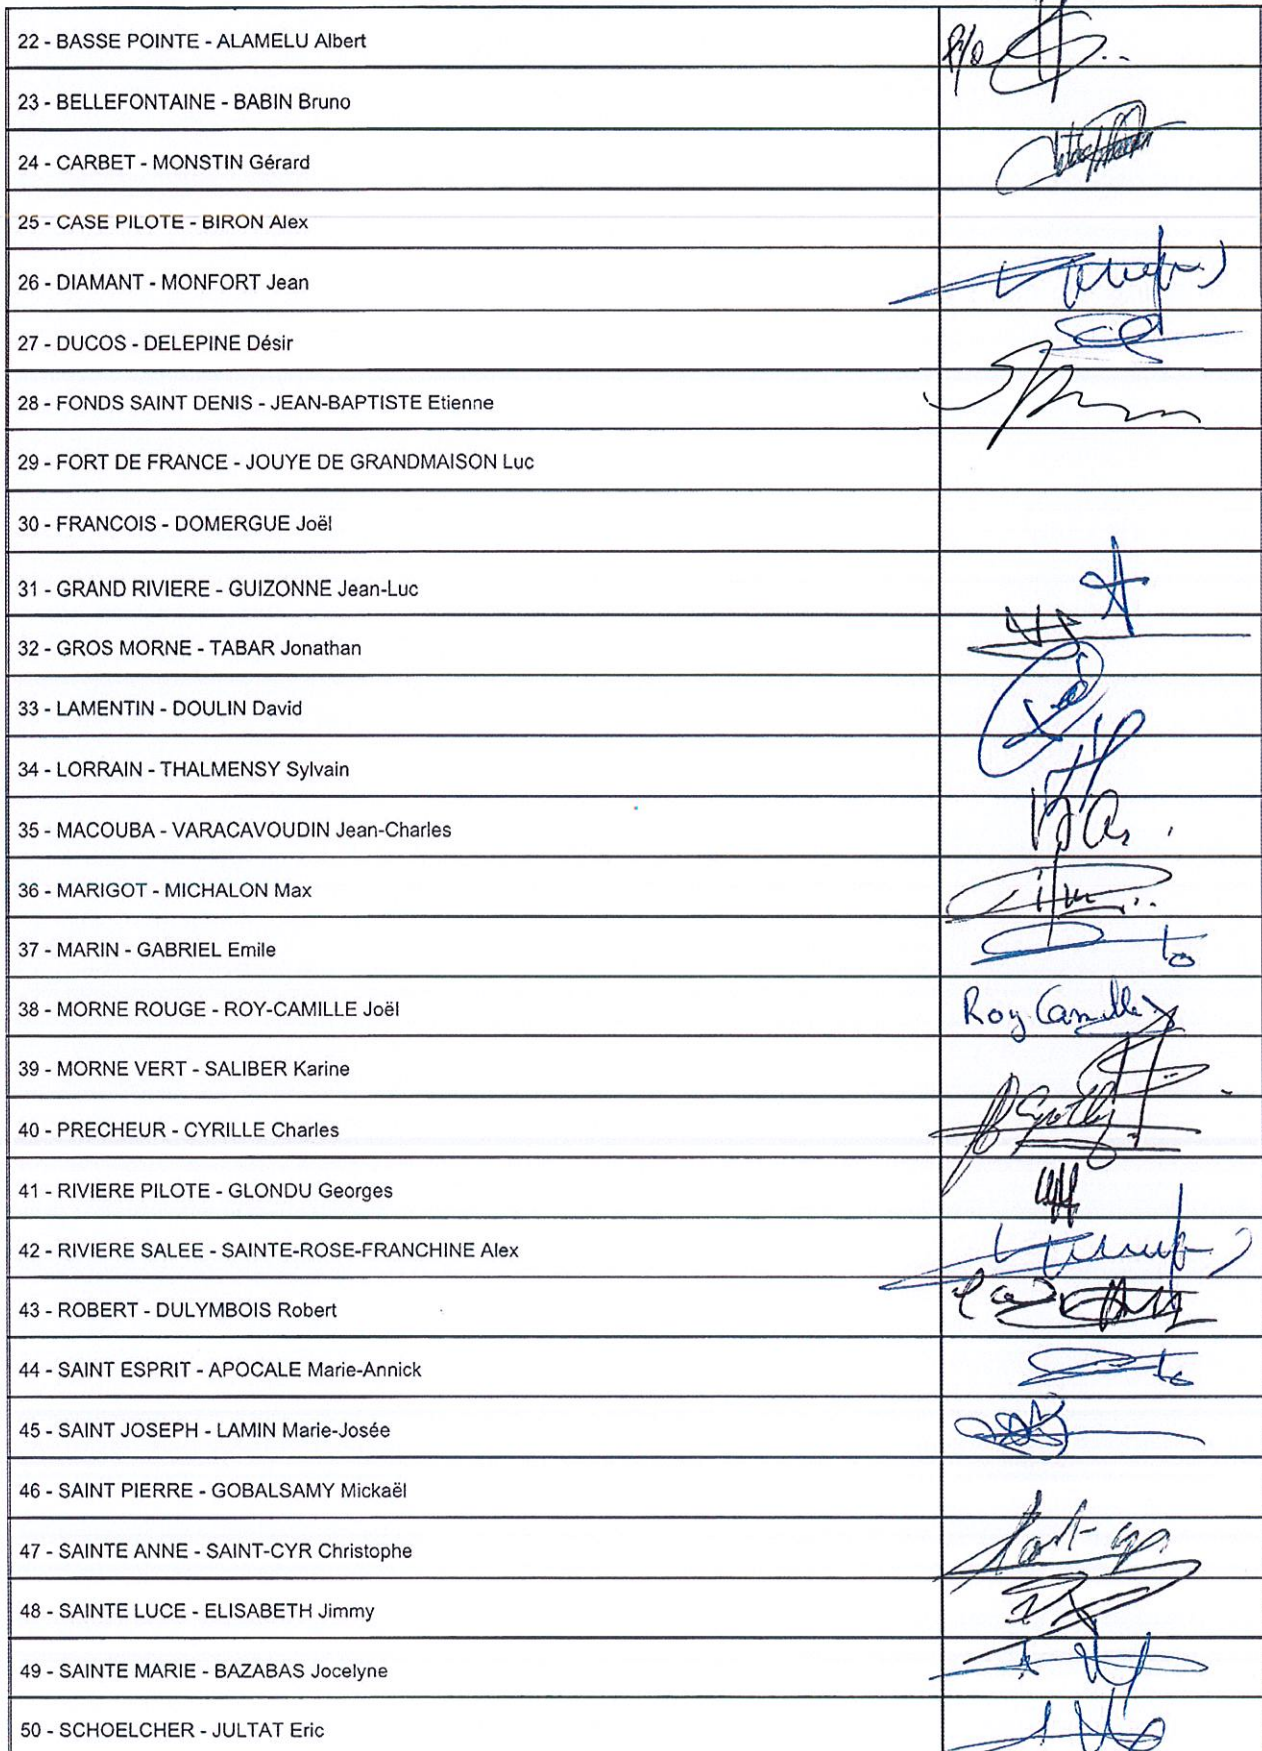 22 - BASSE POINTE - ALAMELU Albert
P/O
23 - BELLEFONTAINE - BABIN Bruno
24 - CARBET - MONSTIN Gérard
25 - CASE PILOTE - BIRON Alex
26 - DIAMANT - MONFORT Jean
27 - DUCOS - DELEPINE Désir
28 - FONDS SAINT DENIS - JEAN-BAPTISTE Etienne
29 - FORT DE FRANCE - JOUYE DE GRANDMAISON Luc
30 - FRANCOIS - DOMERGUE Joël
31 - GRAND RIVIERE - GUIZONNE Jean-Luc
32 - GROS MORNE - TABAR Jonathan
33 - LAMENTIN - DOULIN David
34 - LORRAIN - THALMENSY Sylvain
35 - MACOUBA - VARACAVOUDIN Jean-Charles
36 - MARIGOT - MICHALON Max
37 - MARIN - GABRIEL Emile
38 - MORNE ROUGE - ROY-CAMILLE Joël Roy Camille
39 - MORNE VERT - SALIBER Karine
40 - PRECHEUR - CYRILLE Charles
41 - RIVIERE PILOTE - GLONDU Georges
42 - RIVIERE SALEE - SAINTE-ROSE-FRANCHINE Alex
43 - ROBERT - DULYMBOIS Robert
44 - SAINT ESPRIT - APOCALE Marie-Annick
45 - SAINT JOSEPH - LAMIN Marie-Josée
46 - SAINT PIERRE - GOBALSAMY Mickaël
47 - SAINTE ANNE - SAINT-CYR Christophe
48 - SAINTE LUCE - ELISABETH Jimmy
49 - SAINTE MARIE - BAZABAS Jocelyne
50 - SCHOELCHER - JULTAT Eric